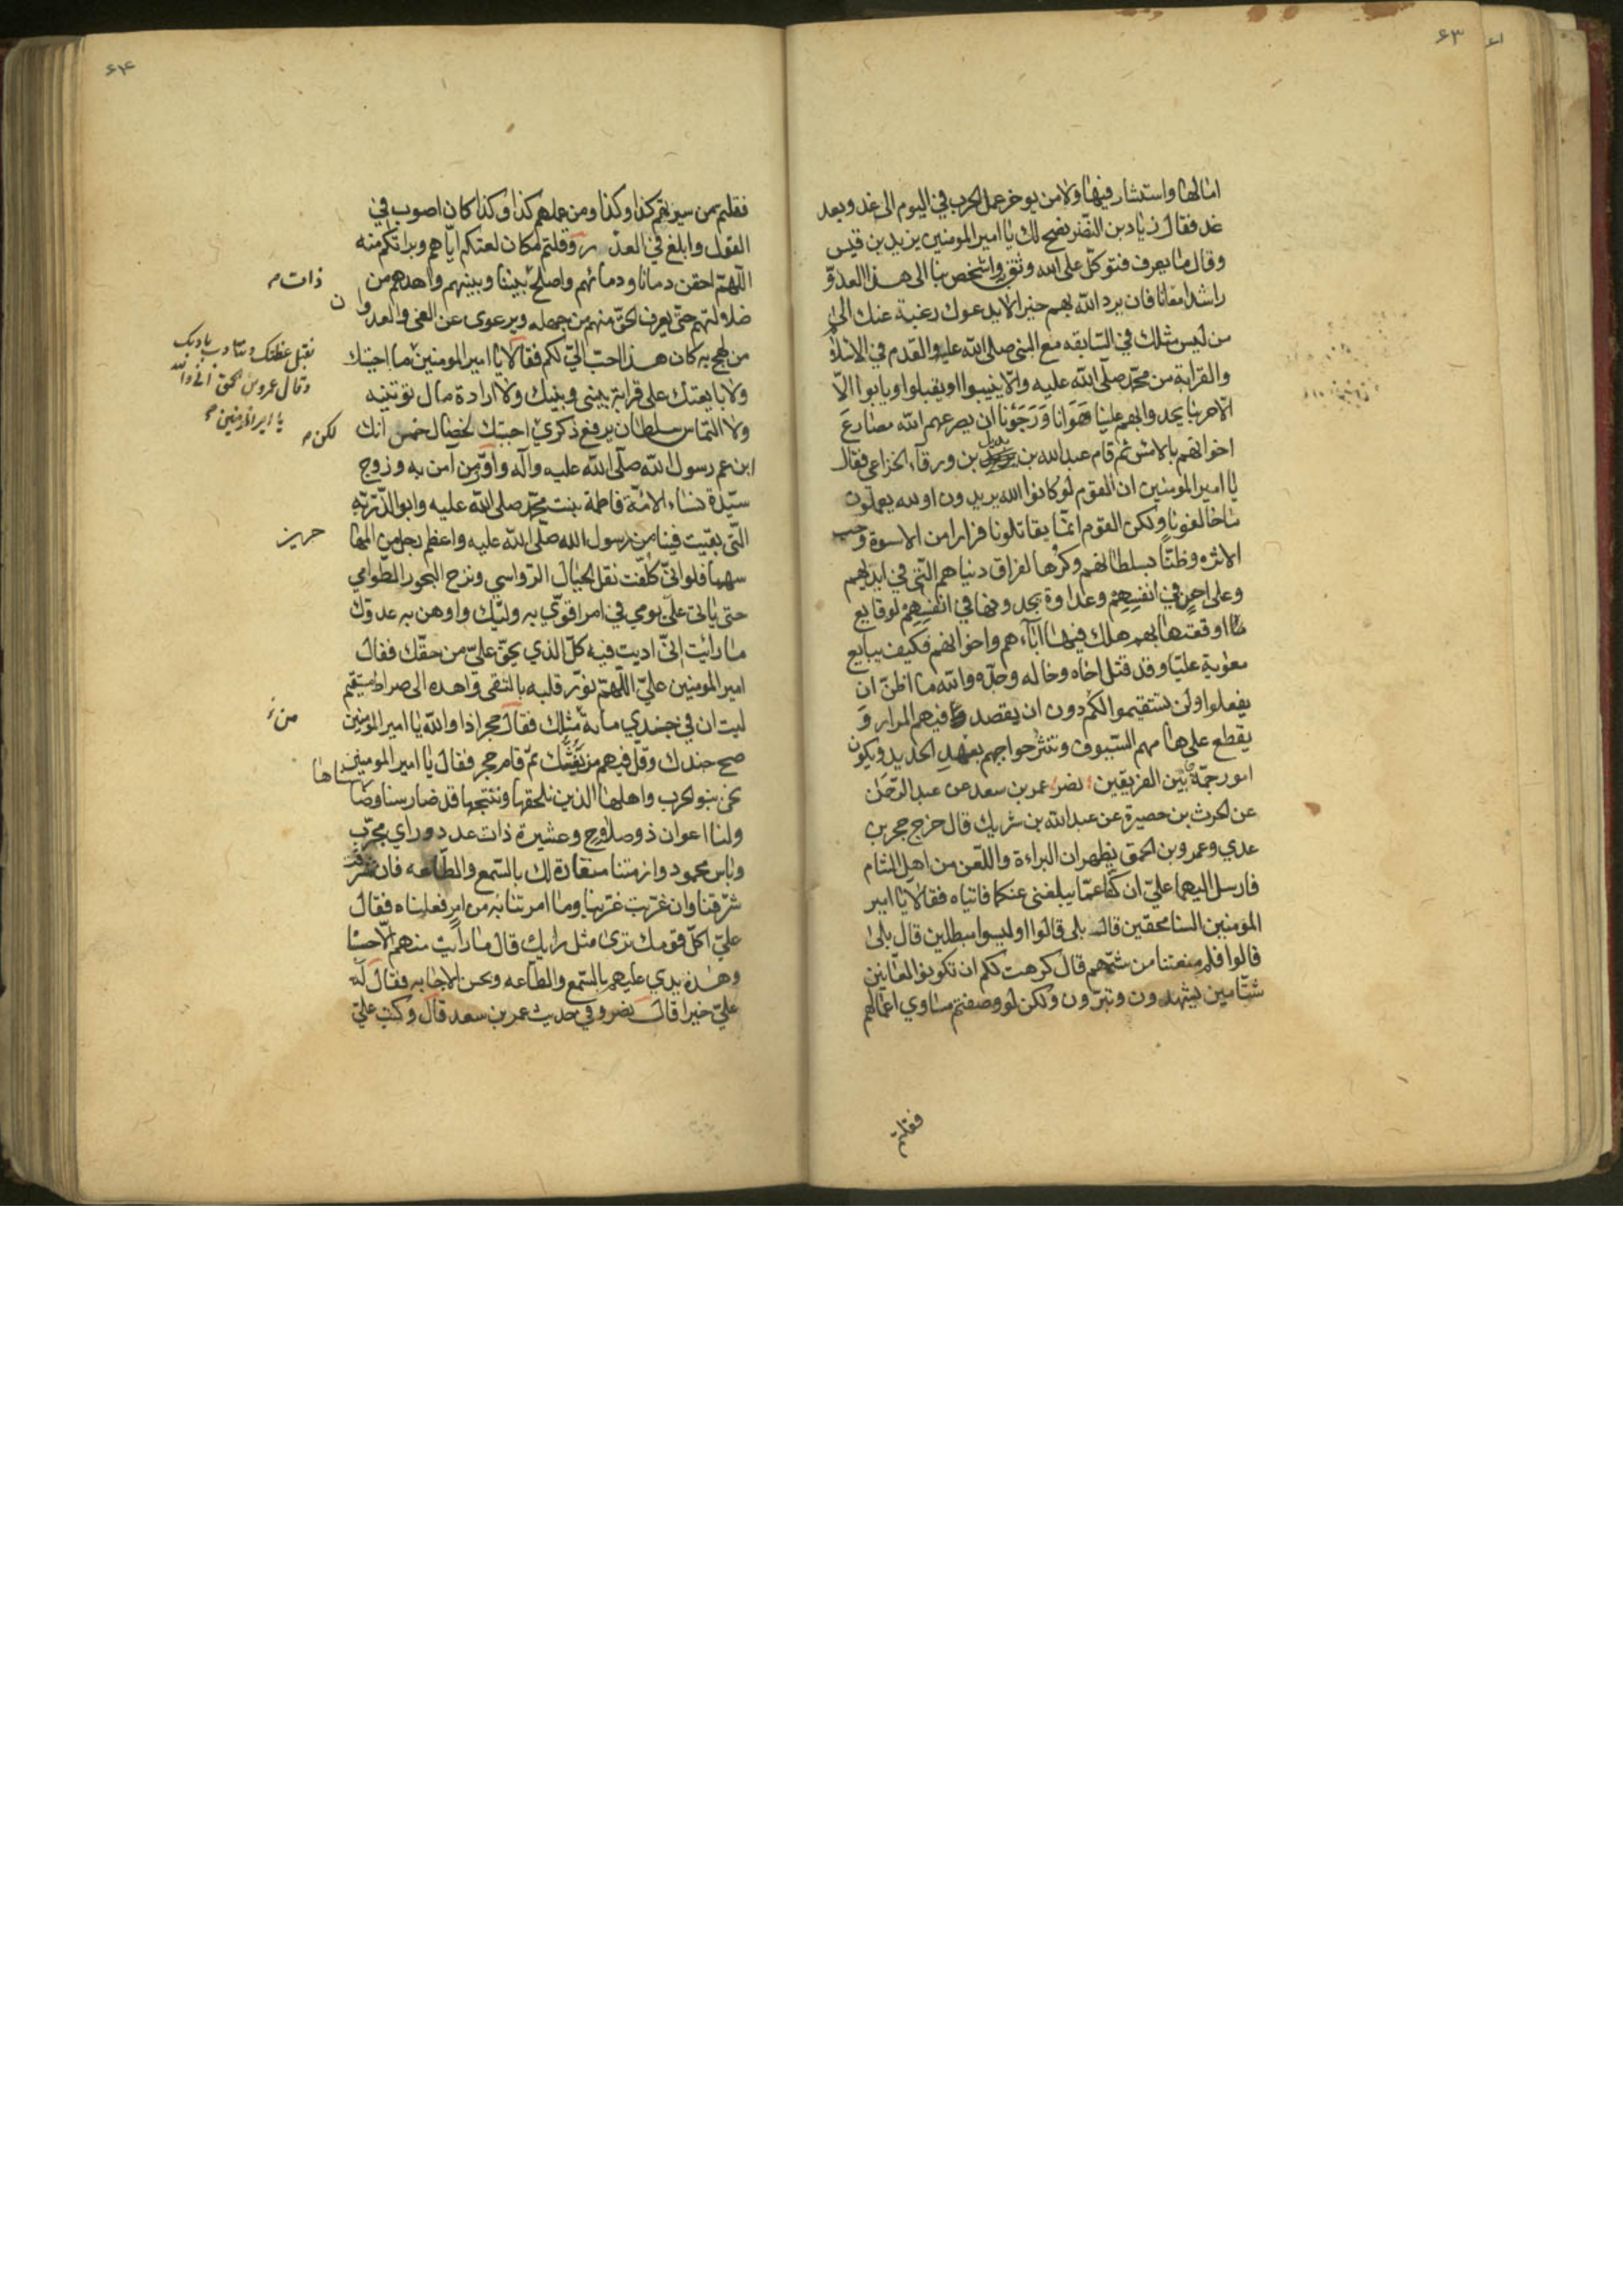 ۶۳
امالها واستشار فيها ولا من يوخر عمل الحرب في اليوم الى غد وبعد
غد فقال زياد بن النضر نصح لك يا امير المومنين يزيد بن قيس
وقال ما يعرف فتوكل على الله وثق به واشخص بنا الى هذا العدو
راشدا معانا فان يرد الله بهم خيرا لا يدعوك رغبة عنك الى
من ليس مثلك في السابقه مع النبي صلى الله عليه والقدم في الاسلام
والقرابة من محمد صلى الله عليه والا ينيبوا او يقبلوا ويابوا الا
الا حربنا يجد وابهم علينا هوانا ورجونا ان يصرعهم الله مصارع
اخوانهم بالامس ثم قام عبد الله بن بديل بن ورقاء الخزاعي فقال
يا امير المومنين ان القوم لو كانوا الله يريدون او لله يعملون
ما خالفونا ولكن القوم انما يقاتلونا فرارا من الاسوة وحب
الاثره وظنا بسلطانهم وكرها لفراق دنياهم التي في ايديهم
وعلى احن في انفسهم وعداوة يجدونها في انفسهم لوقايع
ما اوقعتها بهم هلك فيها اباءهم واخوانهم فكيف يبايع
معوية عليا وقد قتل اخاه وخاله وجده والله ما اظن ان
يفعلوا ولن يستقيموا لكم دون ان يقصد فيهم المرار و
يقطع على هامهم السيوف وتنثر حواجبهم بعمد الحديد ويكون
امور جمة بين الفريقين نصر عمر بن سعد عن عبد الرحمن
عن الحرث بن حصيرة عن عبد الله بن شريك قال خرج حجر بن
عدي وعمرو بن الحمق يظهران البراءة واللعن من اهل الشام
فارسل اليهما علي ان كفا عما يبلغني عنكما فاتياه فقالا يا امير
المومنين السنا محقين قال بلى قالوا اوليسوا مبطلين قال بلى
قالوا فلم منعتنا من شتمهم قال كرهت لكم ان تكونوا لعانين
شتامين يشهدون وتبرون ولكن لو وصفتم مساوي اعمالهم
فقلتم
۶۴
فقلتم من سيرتهم كذا وكذا ومن عملهم كذا وكذا كان اصوب في
القول وابلغ في العذر وقلتم مكان لعنكم اياهم وبراتكم منه
اللهم احقن دمانا ودمائهم واصلح بيننا وبينهم واهدهم من
ذات
ضلاولتهم حتى يعرف الحق منهم من جهله ويرعوى عن الغي والعدوان
من لهج به كان هذا احب الي لكم فقالا يا امير المومنين ما اجبتك
نقبل عظتك ونتادب بادبك
وقال عمرو بن الحمق اني والله
يا امير المومنين
ولا بايعتك على قرابة بيني وبينك ولا ارادة مال توتينه
ولا التماس سلطان يرفع ذكري احبتك لخصال خمس انك
لكن
ابن عم رسول الله صلى الله عليه وآله واول من امن به وزوج
سيدة نساء الامة فاطمة بنت محمد صلى الله عليه وابو الذرية
التي بقيت فينا من رسول الله صلى الله عليه واعظم رجل من المها
سهما فلو اني كلفت نقل الجبال الرواسي ونزح البحور الطوامي
حتى ياتى علي يومي في امر اقوي به وليك واوهن به عدوك
ما رايت اني اديت فيه كل الذي يحق علي من حقك فقال
امير المومنين علي اللهم نور قلبه بالتقى واهده الى صراط مستقيم
ليت ان في جندي ماية مثلك فقال حجر اذا والله يا امير المومنين
من
صح جندك وقل فيهم من يغشك ثم قام حجر فقال يا امير المومنين
نحن بنو الحرب واهلها الذين نلحقها وننتجها قد ضارسنا وضا
سناها
ولنا اعوان ذو صلاوح وعشيرة ذات عدد وراي مجرب
وباس محمود وازمتنا منقادة لك بالسمع والطاعه فان شرقت
شرقنا وان غربت غربنا وما امرتنا به من امر فعلناه فقال
علي اكل قومك نرى مثل رايك قال ما رايت منهم الا حسنا
وهذه يدي عليهم بالسمع والطاعه وبحسن الاجابه فقال له
علي خيرا قال نصر وفي حديث عمر بن سعد قال وكتب علي